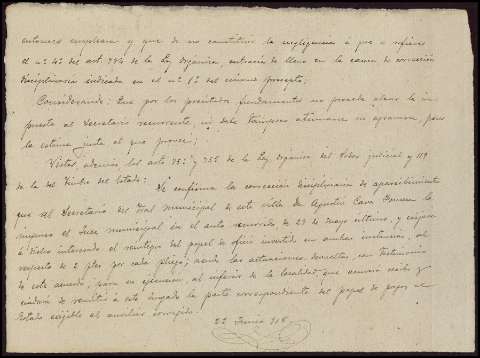 entonces emplean y que de no constituir la negligencia á que se refiere
el nº 4º del art. 734 de la Ley orgánica, entraria de lleno en la causa de corrección
disciplinaria indicada en el nº 1º del mismo precepto;
Considerando: Que por los prenotados fundamentos no procede alzar la im
puesta al Secretario recurrente, ni debe tampoco atenuarse ni agravarse, pues
la estima justa el que provee;
Vistos, además los arts 73 y 75 de la Ley orgánica del Poder judicial y 119
de la del Timbre del Estado: Se confirma la corrección disciplinaria de apercibimiento
que al Secretario del Tribunal municipal de esta villa Dn Agustin Cava le
impuso el Juez municipal en el auto recurrido de 29 de mayo último, y
á dicho interesado el reintegro del papel de oficio invertido en ambas instancias, al
respecto de 2 ptas por cada pliego; donde las actuaciones devueltas, con testimonio
de este acuerdo, para su ejecución, al inferior de la localidad que acusará recibo y
cuidará de remitir á este Juzgado la parte correspondiente del papel de pagos al
Estado exigible al auxiliar corregido.
22 Junio 918